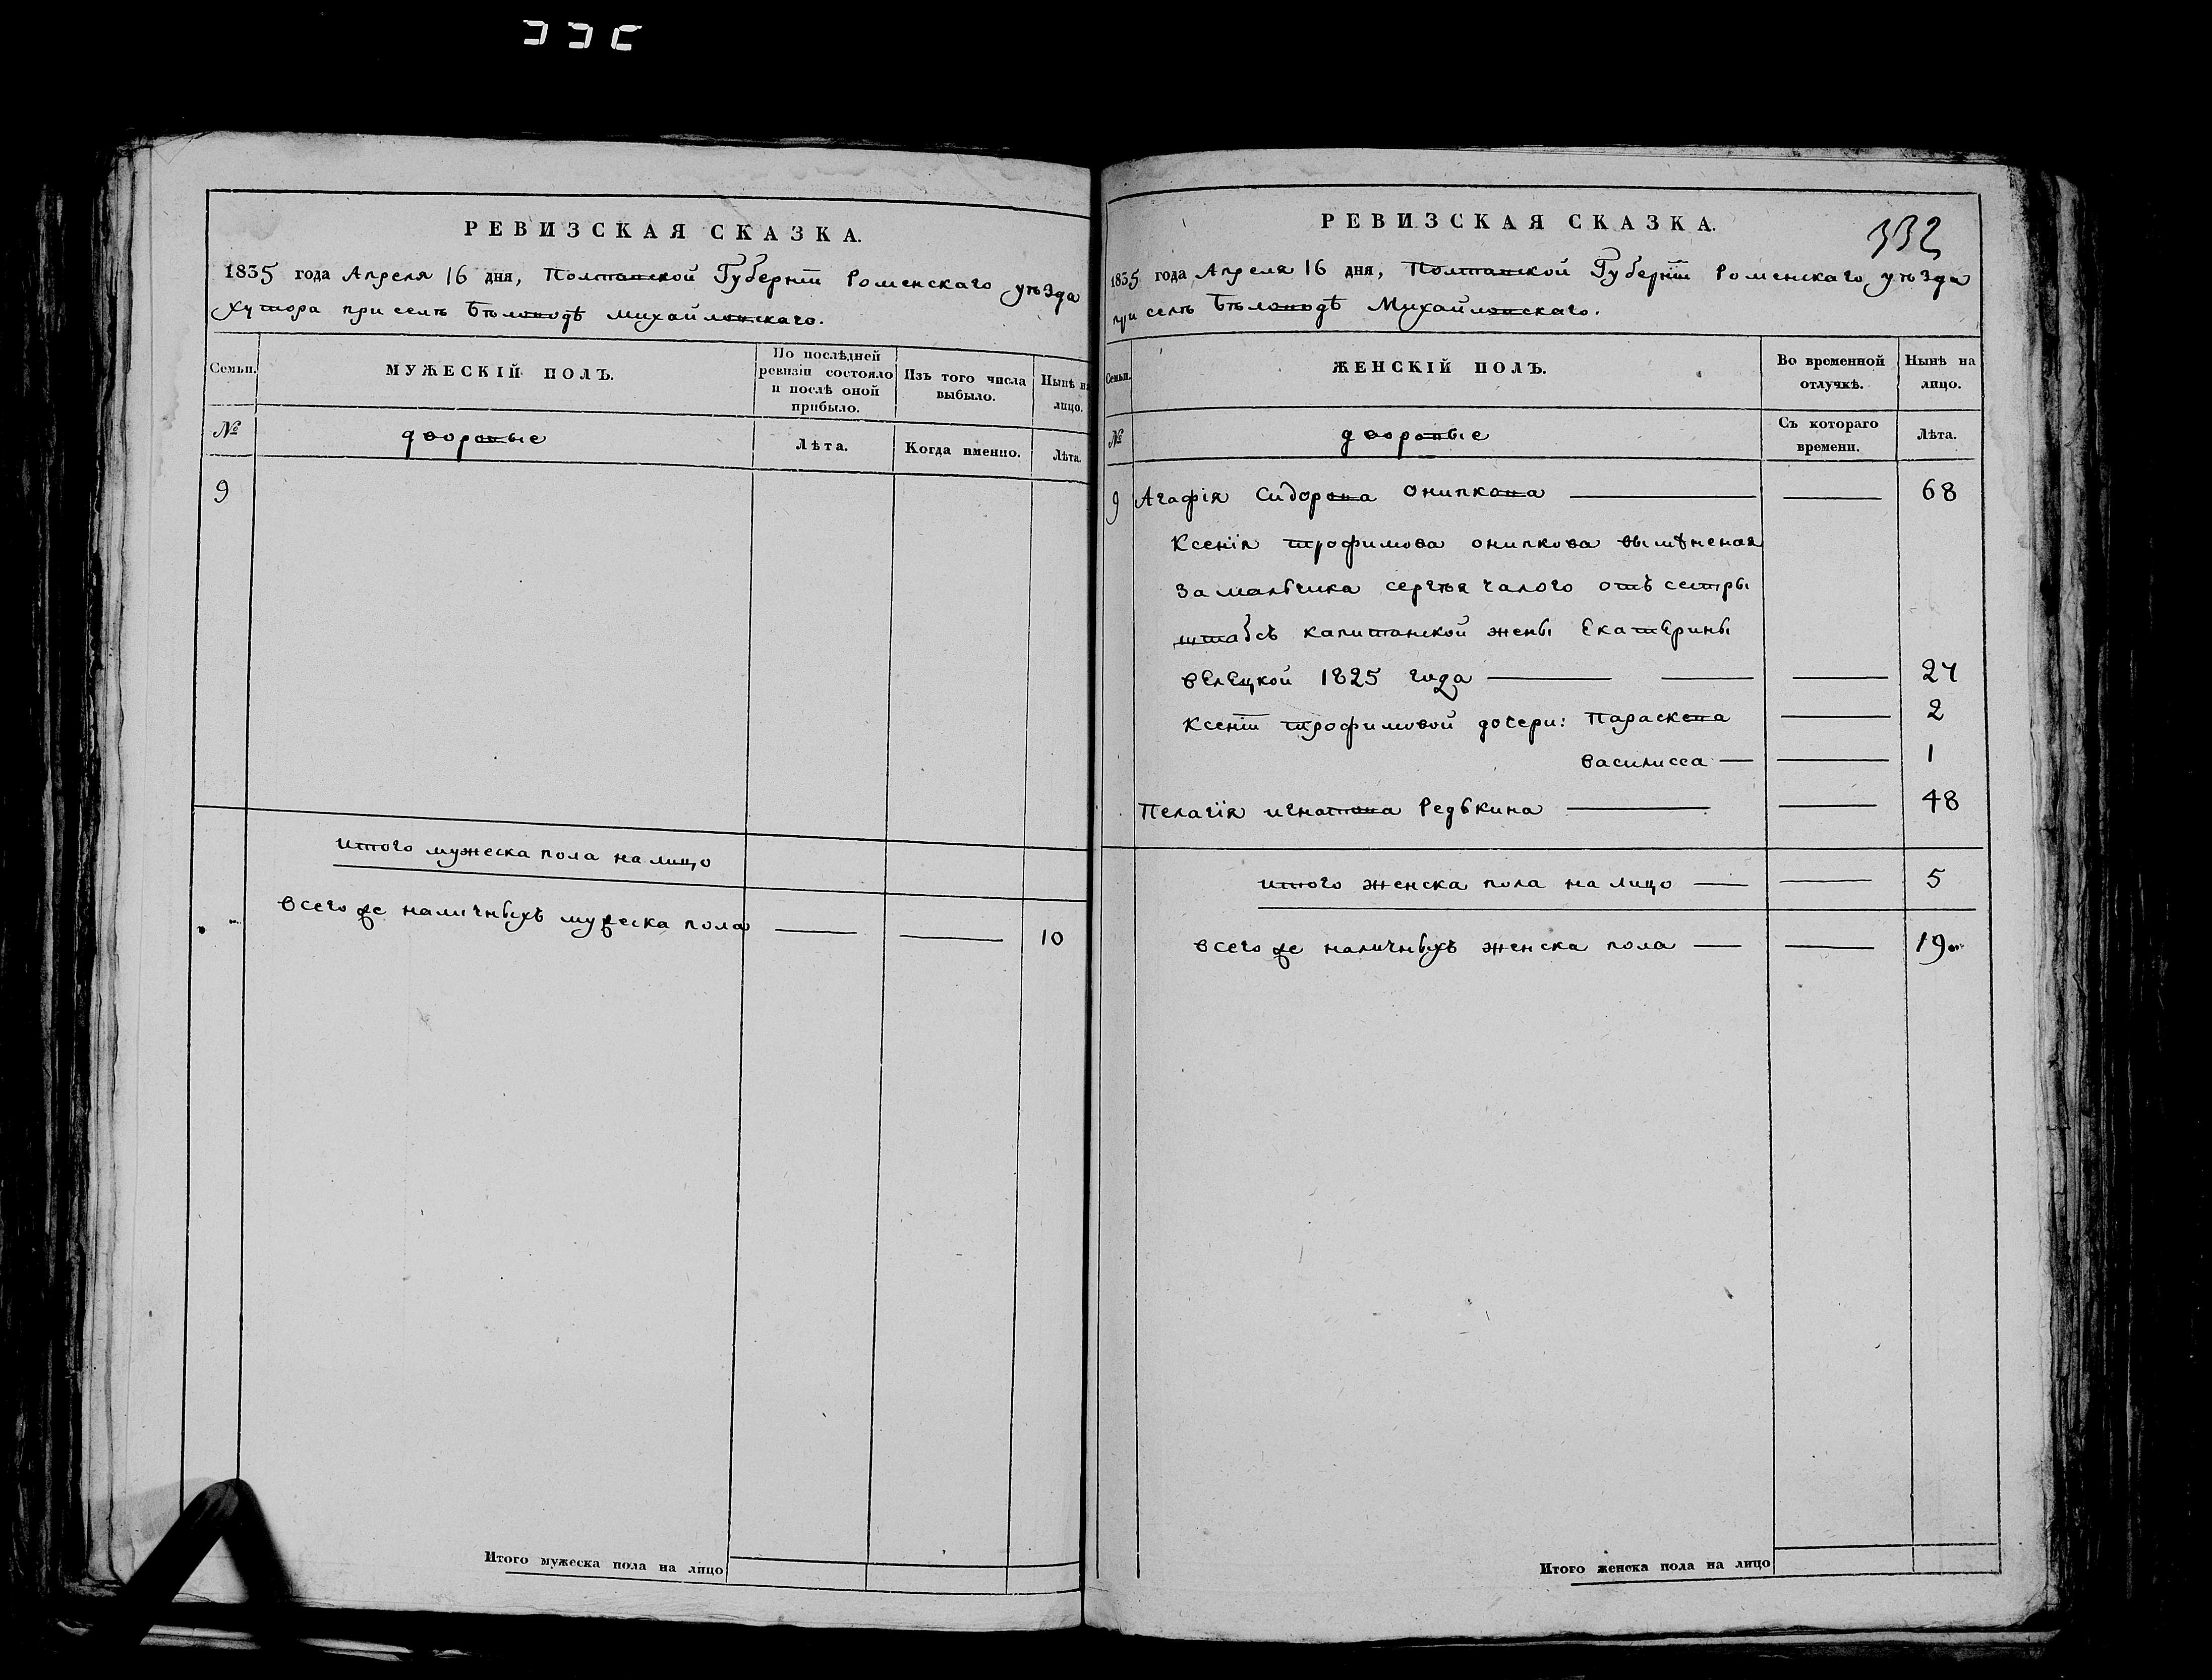 РЕВИЗСКАЯ СКАЗКА.
1835 года Апреля 16 дня, Полтавской Губернїи Роменскаго уѣзда
хутора при селѣ Бѣловодѣ Михайловскаго.
Семьи.
МУЖЕСКІЙ ПОЛЪ.
По послѣдней ревизіи состояло и послѣ оной прибыло.
Изъ того числа выбыло.
Нынѣ на лицо.
№
дворовые
Лѣта.
Когда именно.
Лѣта.
9
итого мужеска пола на лицо
всего же наличныхъ мужеска пола — — 10
Итого мужеска пола на лицо
РЕВИЗСКАЯ СКАЗКА.
332
1835 года Апреля 16 дня, Полтавской Губернїи Роменскаго уѣзда
при селѣ Бѣловодѣ Михайловскаго.
Семьи.
ЖЕНСКІЙ ПОЛЪ.
Во временной отлучкѣ.
Нынѣ на лицо.
№
дворовые
Съ котораго времени.
Лѣта.
9 Агафія Сидорова Онипкова — — 68
Ксенїя трофимова онипкова вымѣненая
за мальчика сергѣя чалого отъ сестры
штабсъ капитанской жены Екатерины
велецкой 1825 года — — — 27
Ксенїи трофимовой дочери: Параскева — 2
василисса — — 1
Пелагїя игнатова Редькина — — 48
итого женска пола на лицо — — 5
всего же наличныхъ женска пола — — 19
Итого женска пола на лицо